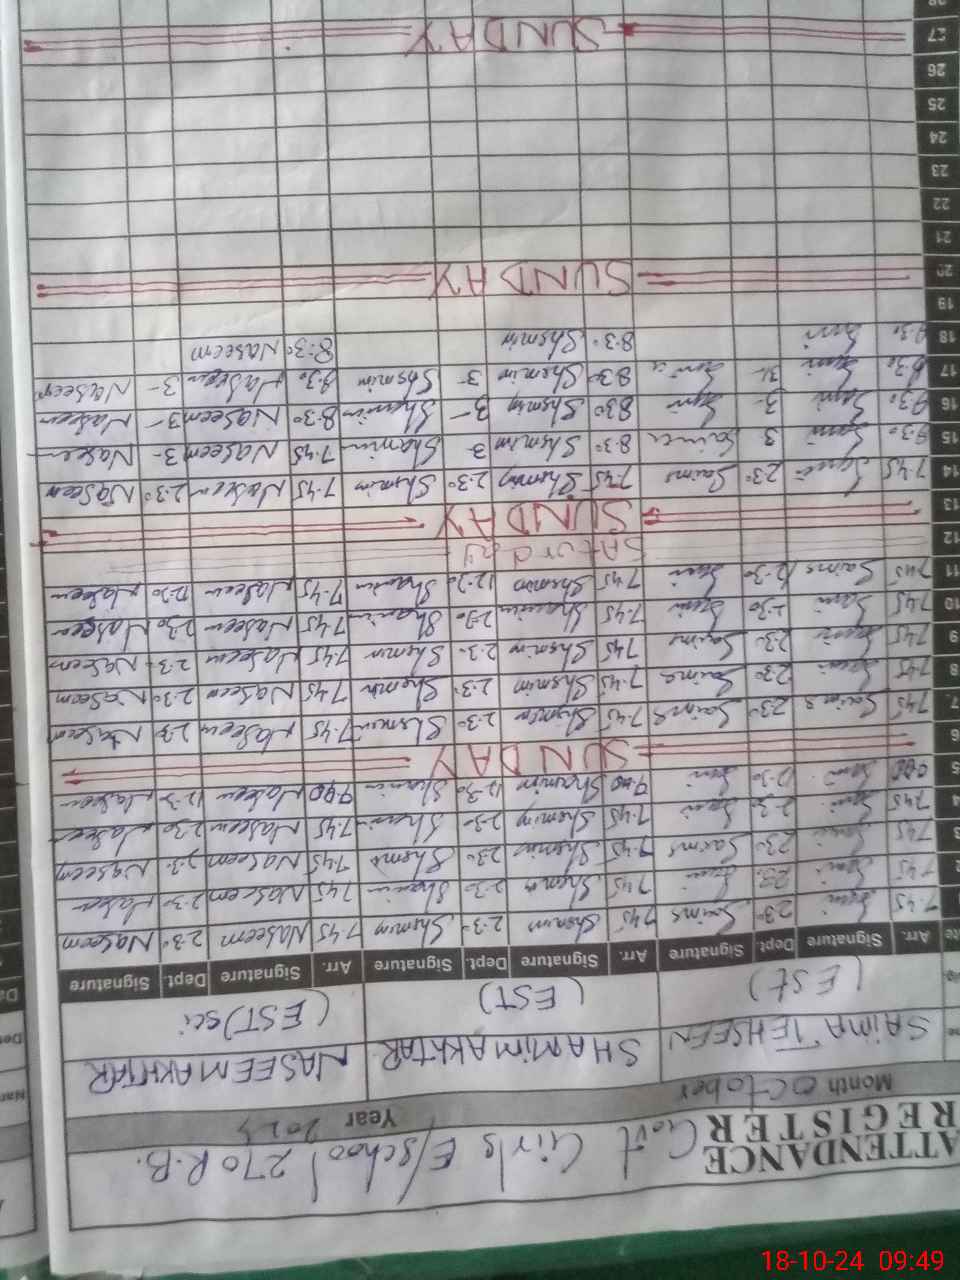 ATTENDANCE REGISTER
Govt Girls E/school 270 R.B.
Month October Year
SAIMA TEHSEEN SHAMIM AKHTAR NASEEM AKHTAR
(EST) (EST) (EST) sci
Arr. Signature Dept. Signature Arr. Signature Dept. Signature Arr. Signature Dept. Signature
7.45 2.30 Saima 7.45 Shamim 2.30 Shamim 7.45 Naseem 2.30 Naseem
2 7.45 7.45 Shamim 2.30 Shamim 7.45 Naseem 2.30 Naseem
3 7.45 2.30 Saima 7.45 Shamim 2.30 Shamim 7.45 Naseem 2.30 Naseem
4 7.45 2.30 7.45 Shamim 2.30 Shamim 7.45 Naseem 2.30 Naseem
5 9.00 12.30 9.00 Shamim 12.30 Shamim 9.00 Naseem 12.30 Naseem
6 SUNDAY
7 7.45 Saima 2.30 Saima 7.45 Shamim 2.30 Shamim 7.45 Naseem 2.30 Naseem
8 7.45 2.30 Saima 7.45 Shamim 2.30 Shamim 7.45 Naseem 2.30 Naseem
9 7.45 2.30 Saima 7.45 Shamim 2.30 Shamim 7.45 Naseem 2.30 Naseem
10 7.45 2.30 7.45 Shamim 2.30 Shamim 7.45 Naseem 2.30 Naseem
11 7.45 Saima 12.30 7.45 Shamim 12.30 Shamim 7.45 Naseem 12.30 Naseem
12 Saturday
13 SUNDAY
14 7.45 2.30 Saima 7.45 Shamim 2.30 Shamim 7.45 Naseem 2.30 Naseem
15 8.30 3 Saima 8.30 Shamim 3 Shamim 7.45 Naseem 3- Naseem
16 8.30 3- 8.30 Shamim 3- Shamim 8.30 Naseem 3- Naseem
17 8.30 3- 8.30 Shamim 3- Shamim 8.30 Naseem 3- Naseem
18 8.30 8.30 Shamim 8:30 Naseem
19
20 SUNDAY
21
22
23
24
25
26
27 SUNDAY
28
18-10-24 09:49